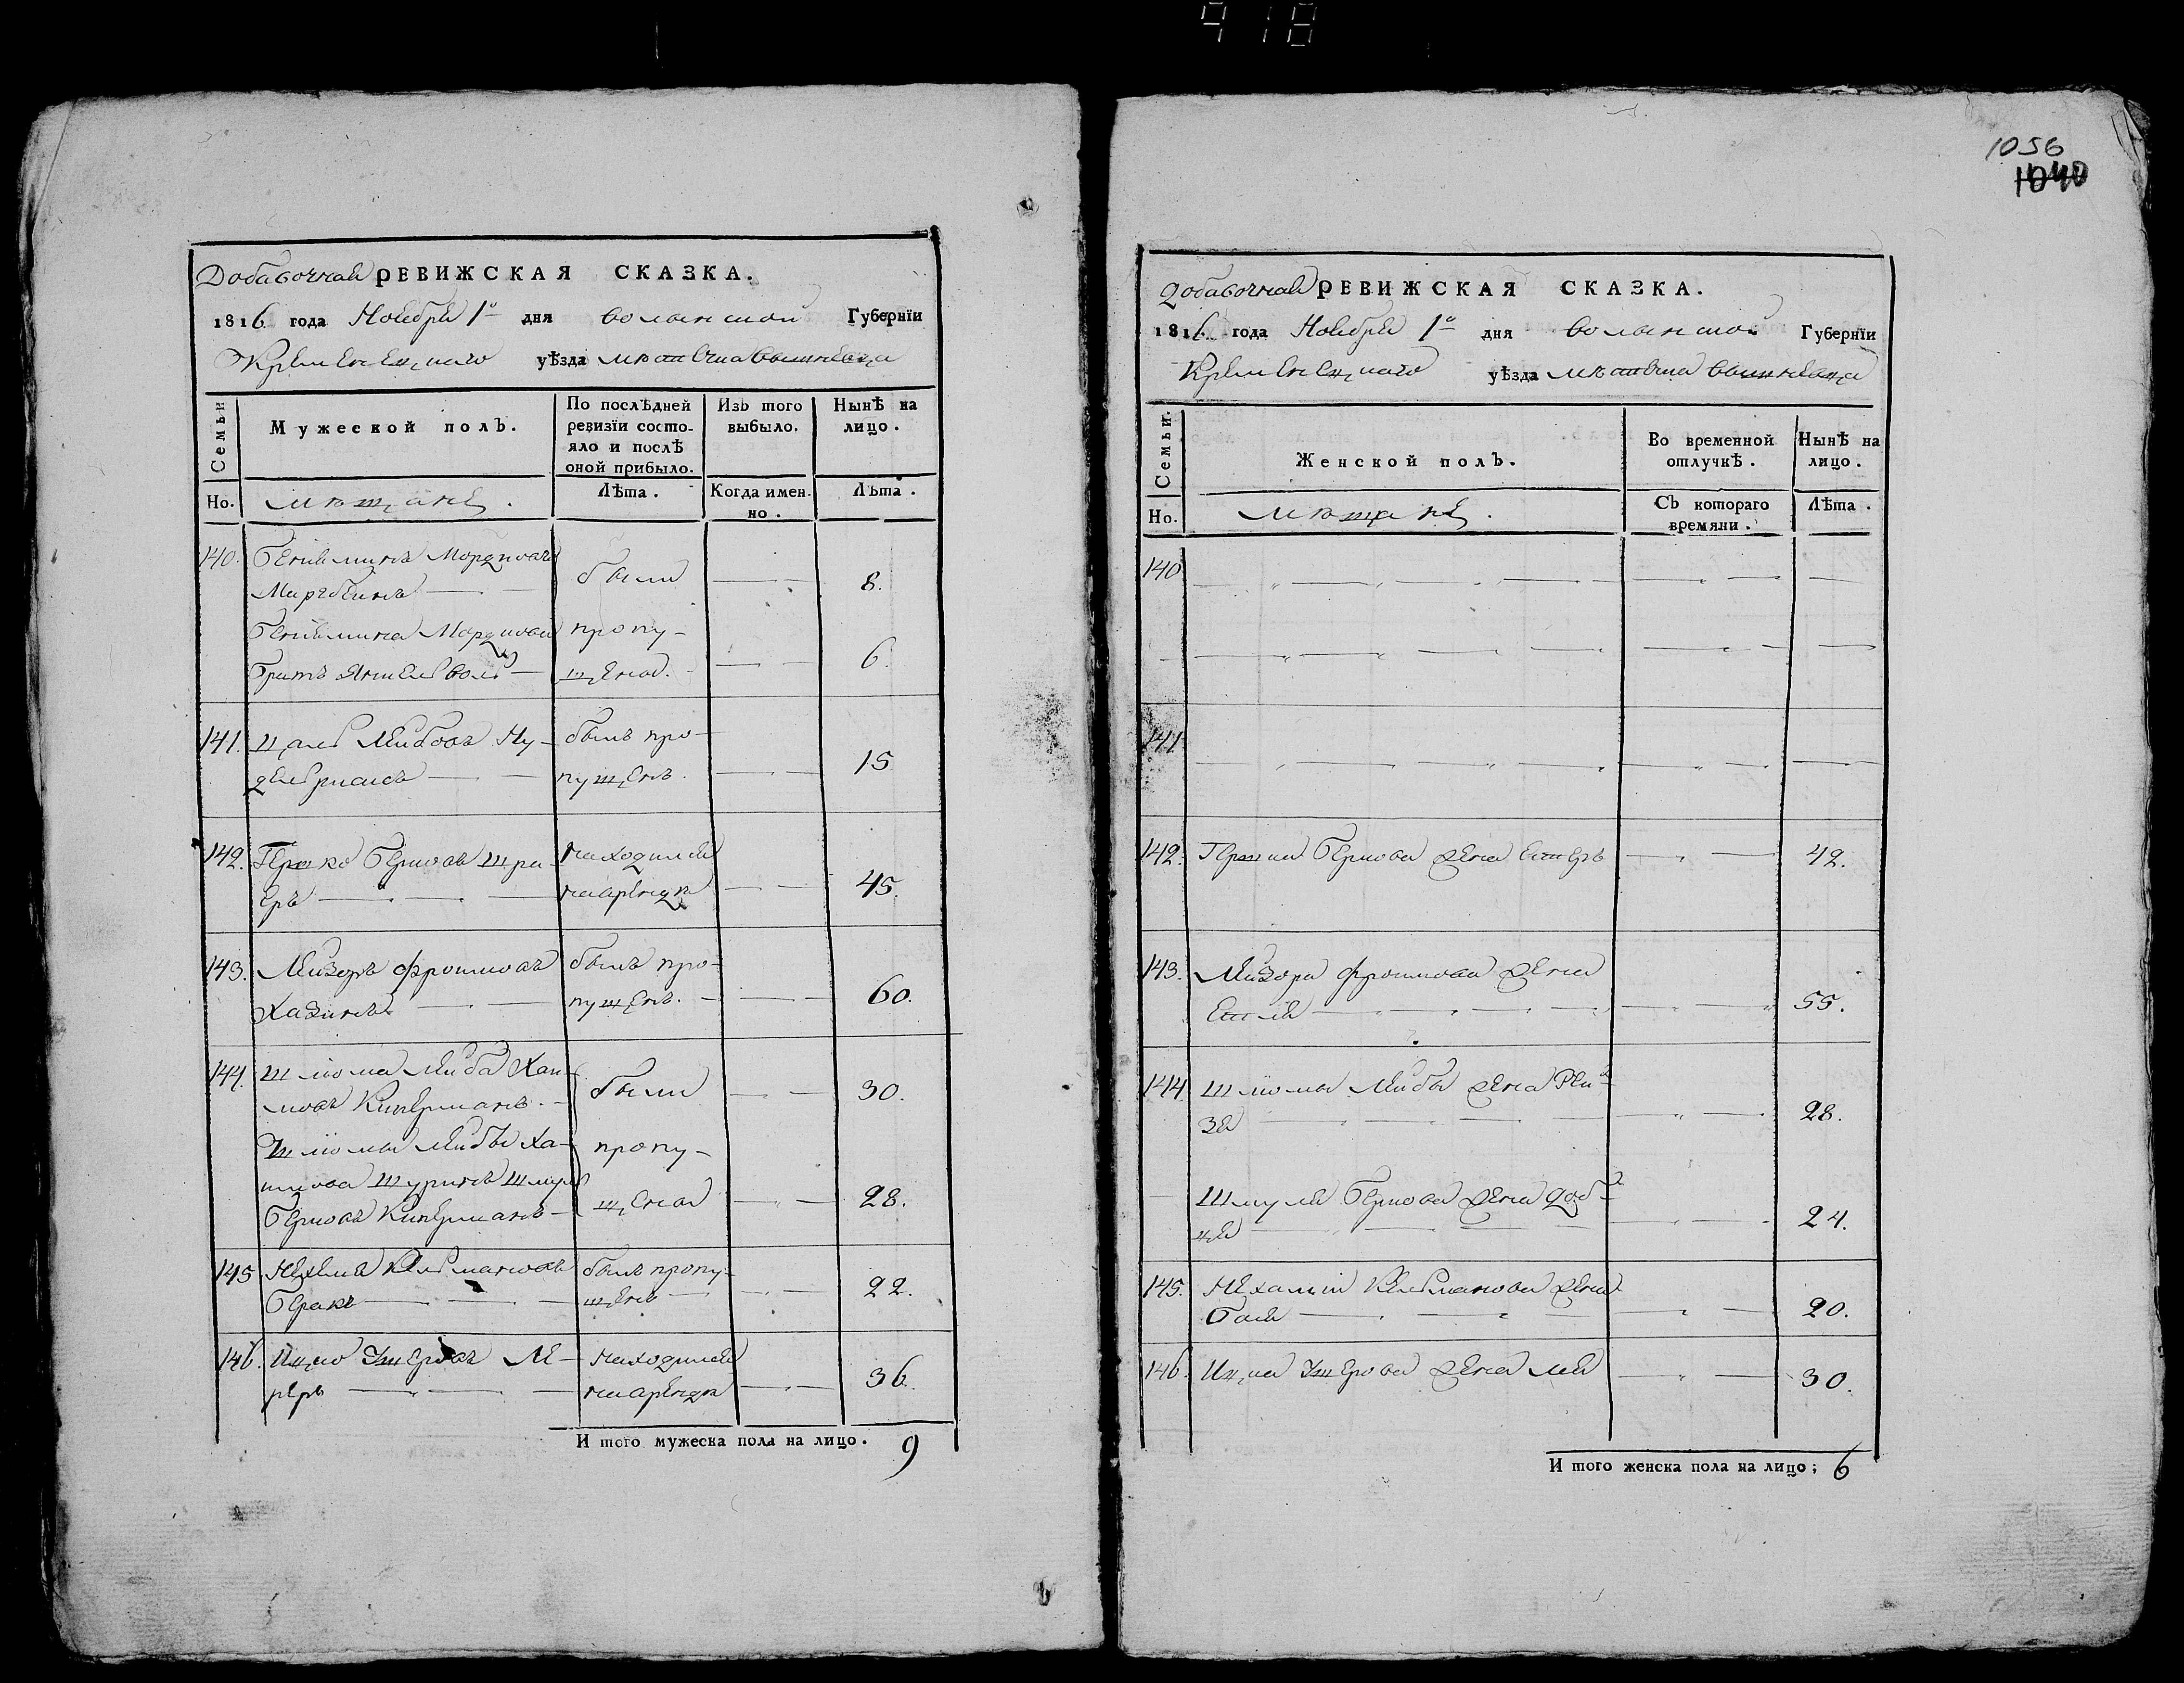 918
Добавочная РЕВИЖСКАЯ СКАЗКА.
1816 года Ноября 1го дня Волынской Губернїи
Кременецкаго уѣзда мѣстечка Вышневца
Семьи
Мужеской полъ.
По послѣдней ревизїи состояло и послѣ оной прибыло.
Изъ того выбыло.
Нынѣ на лицо.
Но.
мѣщане.
Лѣта.
Когда именно.
Лѣта.
140. Бениаминъ Мордковъ
были — 8.
Бениамина Мордкова пропу-
Братъ Янкель Воль — щены. — 6.
141. Цаль Лейбовъ Ну- былъ про-
дельманъ — пущенъ. — 15
142. Гершко Берковъ находился
еръ — на арендѣ — 45.
143. Лейзоръ Фроимовъ былъ про-
Хазинъ — пущенъ. — 60.
144. Шлiома Лейба Хаи-
мовъ Киперманъ. — были — 30.
Шлiомы Лейбы Ха- пропу-
имова Шуринъ Шмуль
Берковъ Киперманъ — щены — 28.
145 Нехемя Кельмановъ былъ пропу-
щенъ — 22.
146. Ицко Ушеровъ Ме- находился
реръ — на арендѣ — 36.
И того мужеска пола на лицо. 9
1056
1040
Добавочная РЕВИЖСКАЯ СКАЗКА.
1816 года Ноября 1го дня Волынской Губернїи
Кременецкаго уѣзда мѣстечка Вышневца
Семьи.
Женской полъ.
Во временной отлучкѣ.
Нынѣ на лицо.
Но.
мѣщане.
Съ котораго времяни.
Лѣта.
140
141
142. Гершка Беркова жена Естеръ — 42.
143. Лейзора Фроимова жена
Естля — 55.
144 Шлiомы Лейбы жена Рей-
зя — 28.
Шмуля Беркова жена Доб-
ця — 24.
145. Нехамiи Кельманова жена
Бася — 20.
146. Ицка Ушерова жена Лея — 30.
И того женска пола на лицо; 6